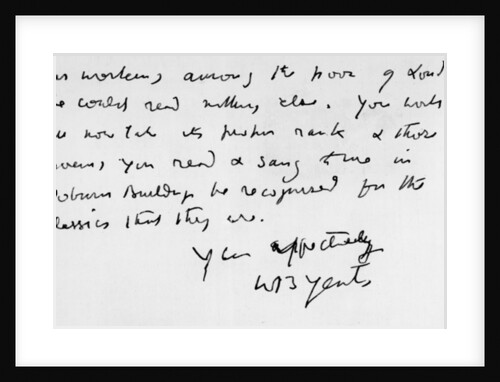 working among the poor of Lond
could read nothing else. You
now take its proper rank & those
you read & sang to me in
oburn Buildings be recognised for the
lassics that they are.
Yrs affectionately
WB Yeats